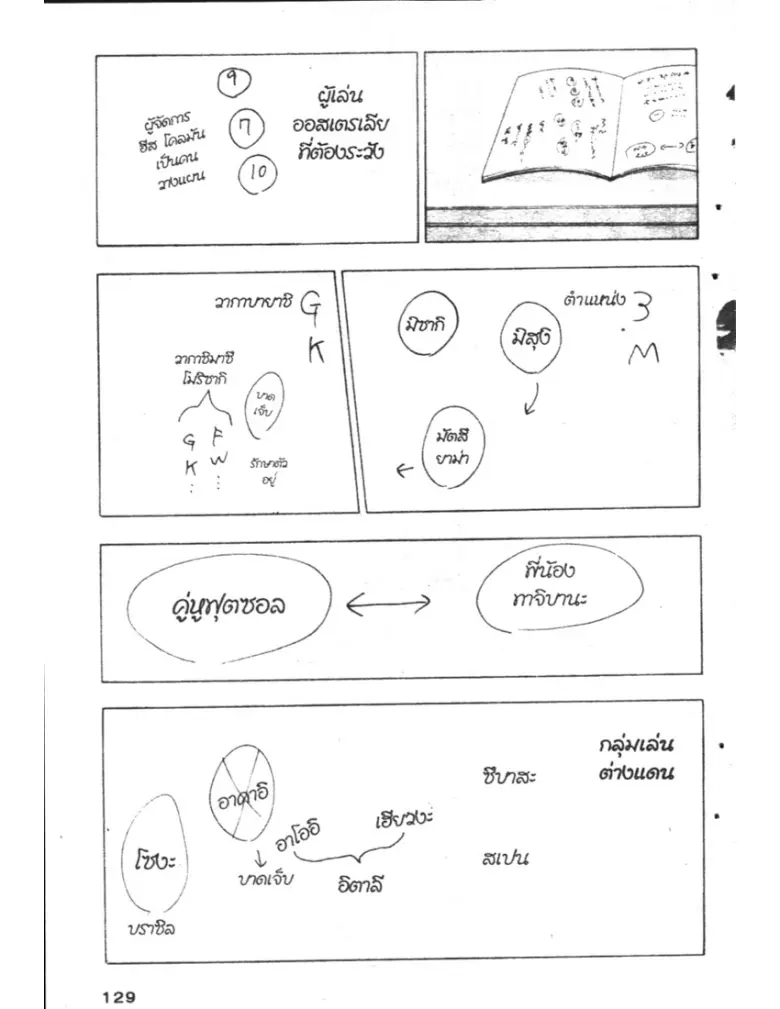 9
7
10
ผู้จัดการ
ฮีส โคลมัน
เป็นคน
วางแผน
ผู้เล่น
ออสเตรเลีย
ที่ต้องระวัง
วากาบายาชิ
G
K
วากาชิมาซึ
โมริซากิ
G
K
F
W
บาด
เจ็บ
รักษาตัว
อยู่
มิซากิ
มิสุงิ
มัตสึ
ยาม่า
ตำแหน่ง
3
M
คู่หูฟุตซอล
พี่น้อง
ทาจิบานะ
กลุ่มเล่น
ต่างแดน
ชีบาสะ
สเปน
อาคาอิ
บาดเจ็บ
อาโออิ
เฮียวงะ
อิตาลี
โซงะ
บราซิล
129